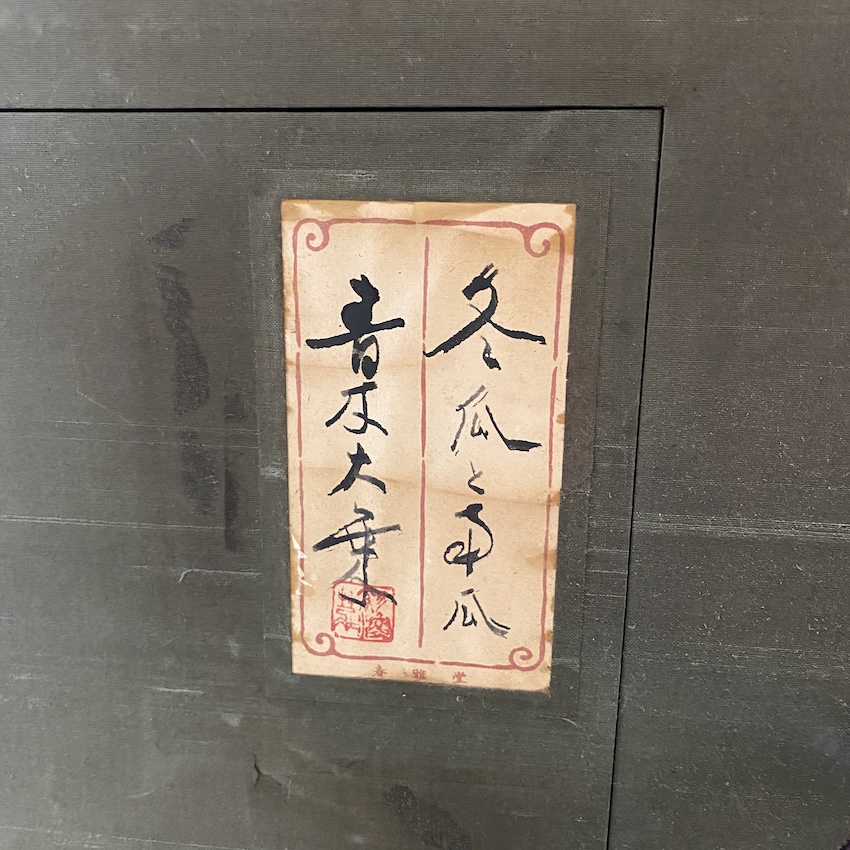 冬瓜と南瓜
青木大乗
春雅堂